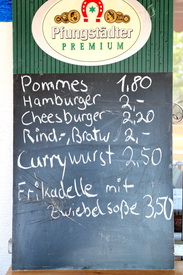 Pfungstädter
PREMIUM
Pommes 1,80
Hamburger 2,-
Cheesburger 2,20
Rind-, Bratw. 2,-
Currywurst 2,50
Frikadelle mit
Zwiebelsoße 3,50